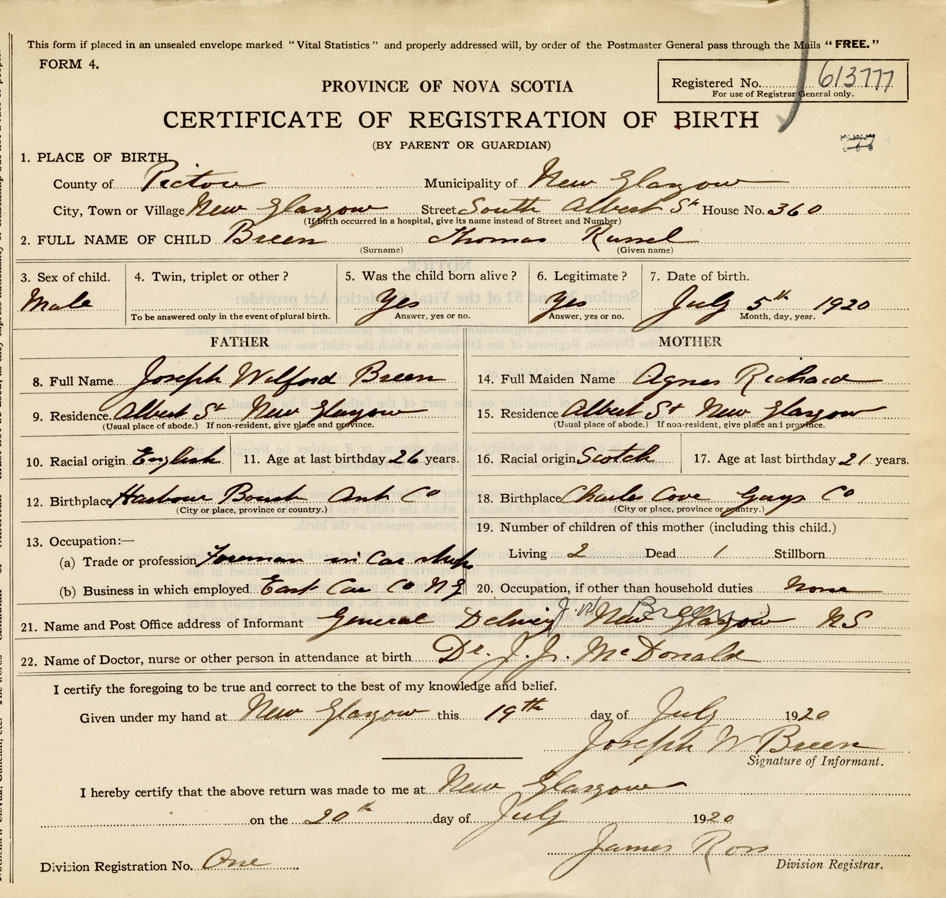 This form if placed in an unsealed envelope marked "Vital Statistics" and properly addressed will, by order of the Postmaster General pass through the Mails "FREE."
FORM 4.
Registered No. 613777
For use of Registrar General only.
PROVINCE OF NOVA SCOTIA
CERTIFICATE OF REGISTRATION OF BIRTH
(BY PARENT OR GUARDIAN)
1. PLACE OF BIRTH
County of Pictou Municipality of New Glasgow
City, Town or Village New Glasgow Street South Albert St House No. 360
(If birth occurred in a hospital, give its name instead of Street and Number)
2. FULL NAME OF CHILD Breen Thomas Russel
(Surname) (Given name)
3. Sex of child. 4. Twin, triplet or other? 5. Was the child born alive? 6. Legitimate? 7. Date of birth.
Male Yes Yes July 5th 1920
To be answered only in the event of plural birth. Answer, yes or no. Answer, yes or no. Month, day, year.
FATHER MOTHER
8. Full Name Joseph Wilford Breen 14. Full Maiden Name Agnes Richard
9. Residence Albert St New Glasgow 15. Residence Albert St New Glasgow
(Usual place of abode.) If non-resident, give place and province. (Usual place of abode.) If non-resident, give place and province.
10. Racial origin English 11. Age at last birthday 26 years. 16. Racial origin Scotch 17. Age at last birthday 21 years.
12. Birthplace Harbour Ant Co 18. Birthplace Charles Cove Guys Co
(City or place, province or country.) (City or place, province or country.)
19. Number of children of this mother (including this child.)
13. Occupation:—
Living 2 Dead 1 Stillborn
(a) Trade or profession Foreman in Car shops
(b) Business in which employed East Car Co N G 20. Occupation, if other than household duties None
J. W. Breen
21. Name and Post Office address of Informant General New Glasgow NS
22. Name of Doctor, nurse or other person in attendance at birth Dr. J. J. McDonald
I certify the foregoing to be true and correct to the best of my knowledge and belief.
Given under my hand at New Glasgow this 19th day of July 1920
Joseph W Breen
Signature of Informant.
I hereby certify that the above return was made to me at New Glasgow
on the 20th day of July 1920
James Ross
Division Registration No. One Division Registrar.